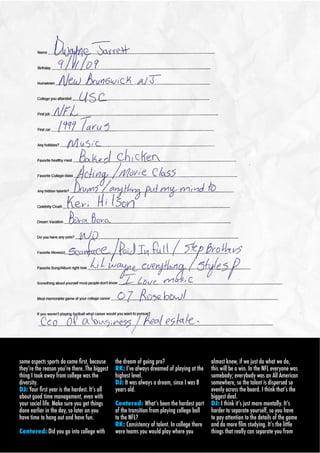 Name Dwayne Jarrett
Birthday 9/11/09
Hometown New Brunswick NJ
College you attended USC
First job NFL
First car 1999 Tarus
Any hobbies? Music
Favorite healthy meal Baked Chicken
Favorite College class Acting / Movie Class
Any hidden talents? Drums / anything put my mind to
Celebrity Crush Keri Hilson
Dream Vacation Bora Bora
Do you have any pets? NO
Favorite Movie(s) Scarface / Paid In Full / Step Brothers
Favorite Song/Album right now Lil wayne everything / Styles P
Something about yourself most people don't know I Love music
Most memorable game of your college career 07 Rosebowl
If you weren't playing football what career would you want to pursue?
Ceo Of a business / Real estate.
some aspects sports do come first, because
they're the reason you're there. The biggest
thing I took away from college was the
diversity.
DJ: Your first year is the hardest. It's all
about good time management, even with
your social life. Make sure you get things
done earlier in the day, so later on you
have time to hang out and have fun.
Centered: Did you go into college with
the dream of going pro?
RK: I've always dreamed of playing at the
highest level.
DJ: It was always a dream, since I was 8
years old.
Centered: What's been the hardest part
of the transition from playing college ball
to the NFL?
RK: Consistency of talent. In college there
were teams you would play where you
almost knew, if we just do what we do,
this will be a win. In the NFL everyone was
somebody; everybody was an All American
somewhere, so the talent is dispersed so
evenly across the board. I think that's the
biggest deal.
DJ: I think it's just more mentally. It's
harder to separate yourself, so you have
to pay attention to the details of the game
and do more film studying. It's the little
things that really can separate you from